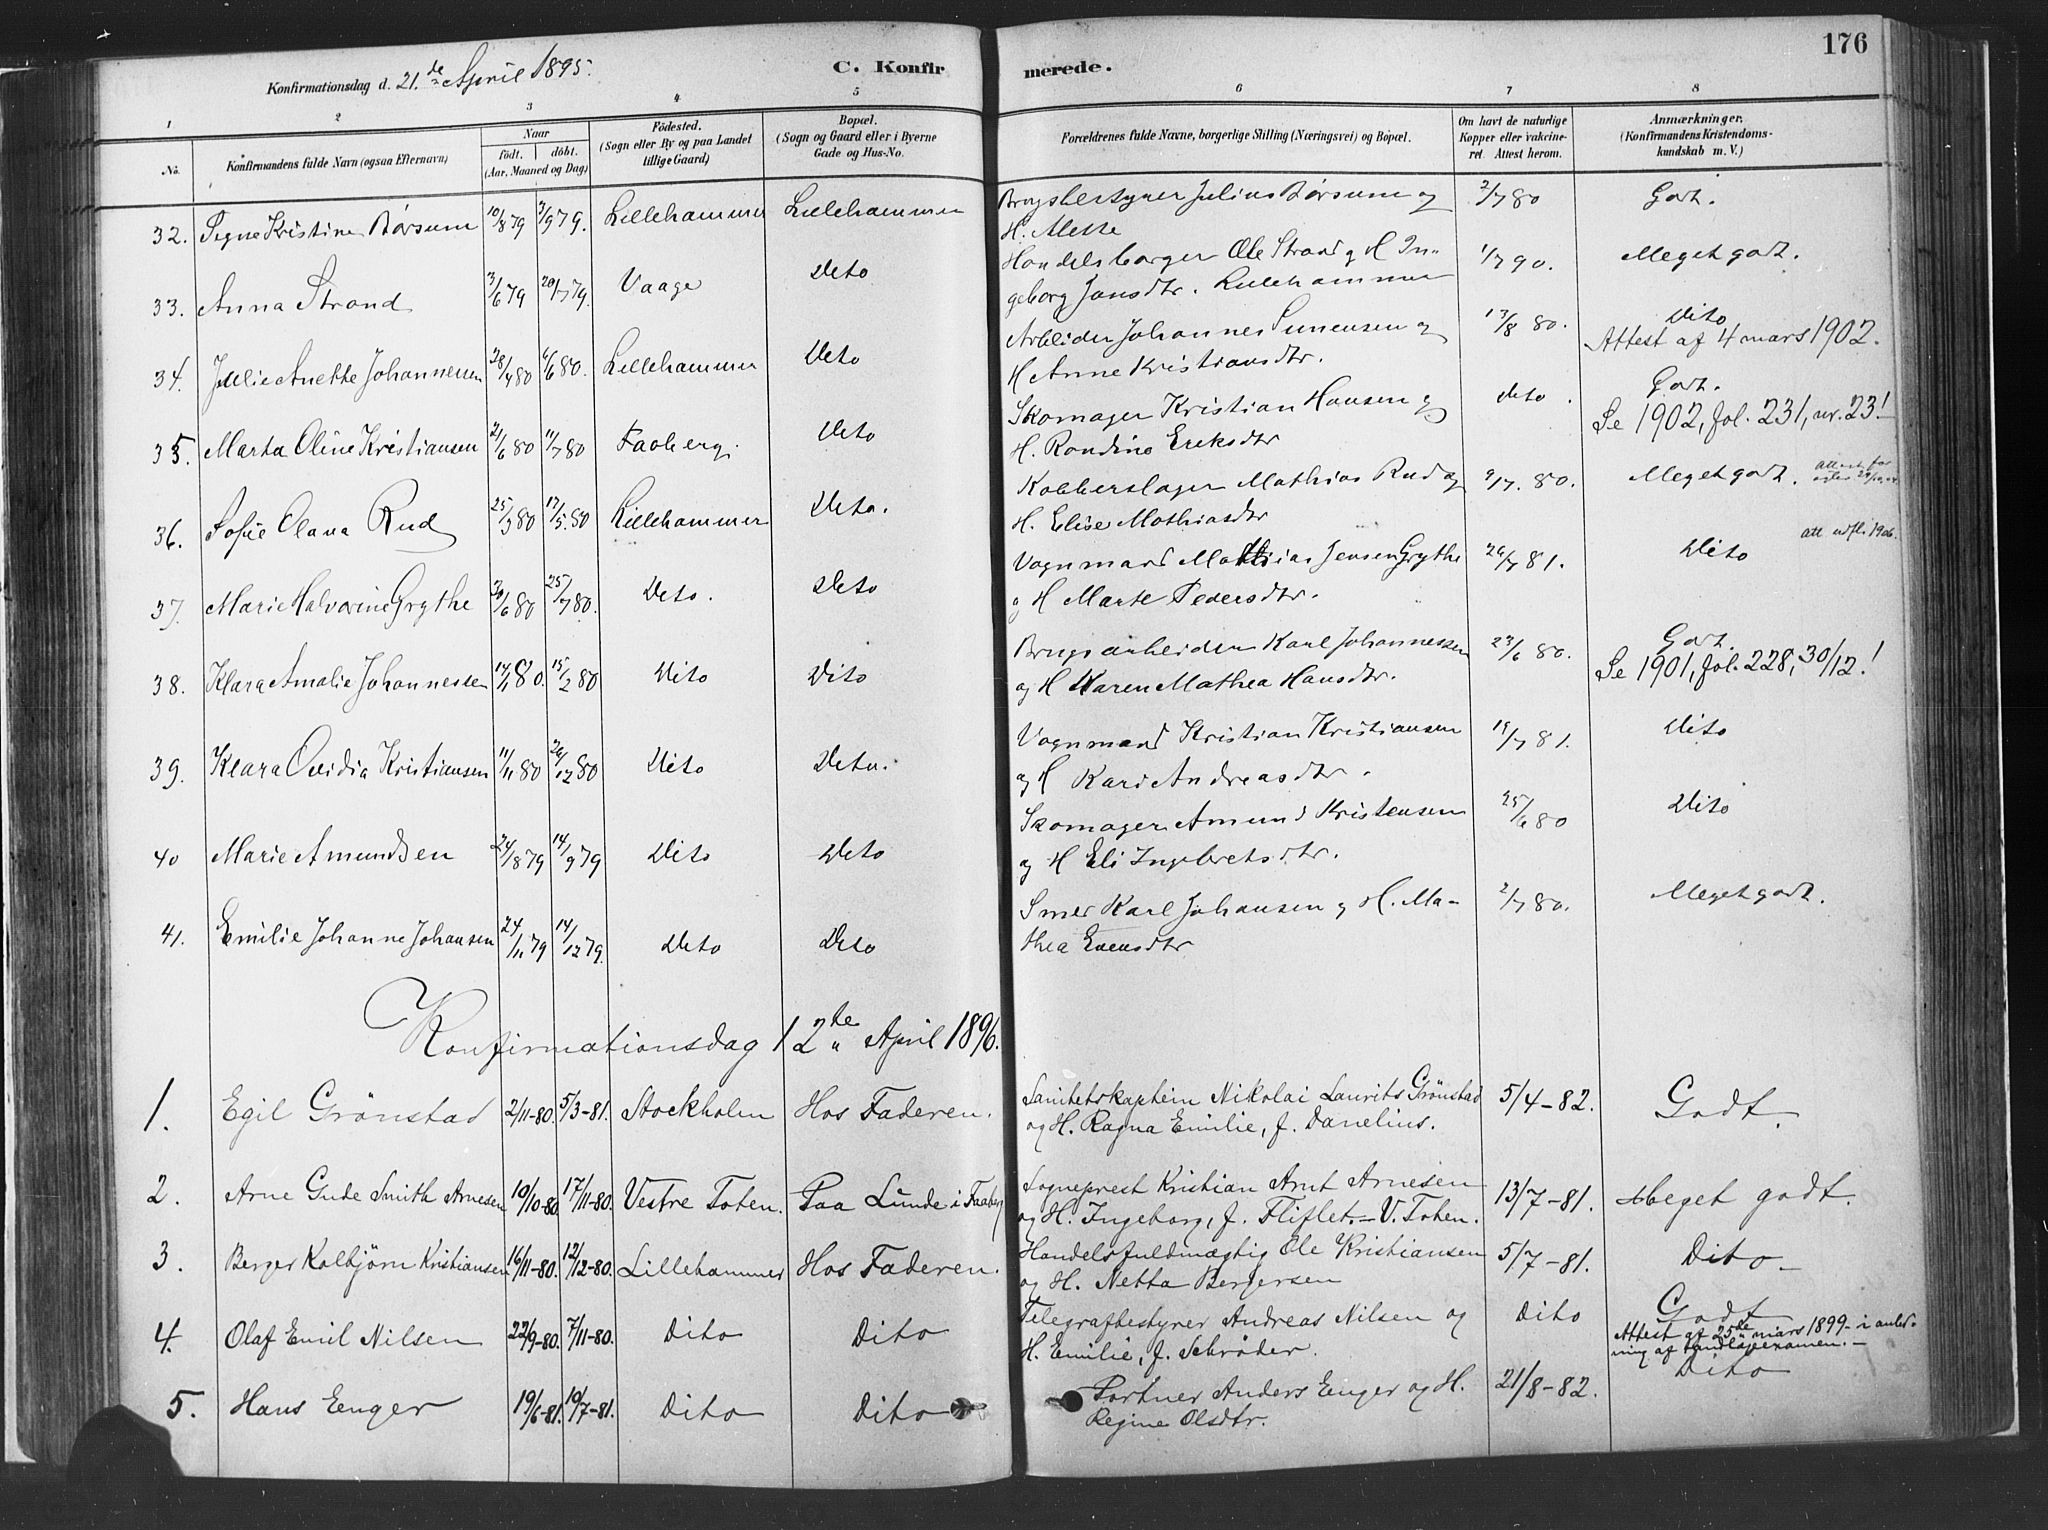 176
Konfirmationsdag d. 21.de April 1895.
C. Konfirmerede.
1 2 3 4 5 6 7 8
No.
Konfirmandens fulde Navn (ogsaa Efternavn)
Naar
født. döbt.
(Aar, Maaned og Dag)
Födested.
(Sogn eller By og paa Landet
tillige Gaard)
Bopæl.
(Sogn og Gaard eller i Byerne
Gade og Hus-No.
Forældrenes fulde Navne, borgerlige Stilling (Næringsvei) og Bopæl.
Om havt de naturlige
Kopper eller vakcine-
ret. Attest herom.
Anmærkninger.
(Konfirmandens Kristendoms-
kundskab m. V.)
32. Signe Kristine Børsum 10/8 79 7/9 79. Lillehammer Lillehammer Brugsbestyrer Julius Børsum og 2/7 80 Godt.
H. Mette
33. Anna Strand 3/6 79 20/7 79. Vaage Dito Handelsborger Ole Strand og H In- 1/7 90. Meget godt.
geborg Jansdtr. Lillehammer
34. Julie Anette Johannessen 28/4 80 6/6 80. Lillehammer Dito Arbeider Johannes Simensen og 13/8 80. Dito
H Anne Kristiansdtr. Attest af 4 mars 1902.
35. Marta Oline Kristiansen 21/6 80 11/7 80 Faaberg. Dito Skomager Kristian Hansen og dito. Godt.
H. Rondine Eriksdtr Se 1902, fol. 231, nr. 23!
36. Sofie Olava Rud 25/3 80 17/5 80 Lillehammer Dito. Kobberslager Mathias Rud og 9/7. 80. Meget godt.
H. Elise Mathiasdtr
37. Marie Halvorine Grythe 20/6 80 25/7 80. Dito. Dito Vognmand Mathias Jensen Grythe 26/7 81. Dito att. udst. 1906.
og H Marte Pedersdtr.
38. Klara Amalie Johannessen 14/1 80. 15/2 80 Dito Dito Brugsarbeider Karl Johannessen 23/6 80. Godt.
og H Karen Mathea Hansdtr. Se 1901, fol. 228, 30/12!
39. Klara Ovidia Kristiansen 11/11 80 26/12 80 Dito Dito. Vognmand Kristian Kristiansen 19/7 81. Dito
og H Kari Andreasdtr.
40 Marie Amundsen 24/8 79 14/9 79 Dito Dito Skomager Amund Kristensen 25/6 80 Dito
og H Eli Ingebretsdtr.
41. Emilie Johanne Johansen 24/11 79 14/12 79. Dito Dito Smed Karl Johansen og H. Ma- 2/7 80. Meget godt.
thea Evensdtr
Konfirmationsdag 12te April 1896.
1. Egil Grönstad 2/11-80. 5/3-81. Stockholm Hos Faderen. Sanitetskaptein Nikolai Laurits Grönstad 5/4-82. Godt.
og H. Ragna Emilie, f. Danelius.
2. Arne Gude Smith Arnesen 10/10-80. 17/11-80. Vestre Toten. Paa Lunde i Faaberg Sogneprest Kristian Arnt Arnesen 13/7-81. Meget godt.
og H. Ingeborg, f. Fliflet.-V.Toten.
3. Berger Kolbjörn Kristiansen 16/11-80. 12/12-80. Lillehammer Hos Faderen. Handelsfuldmægtig Ole Kristiansen 5/7-81. Dito-
og H. Netta Bergersen
4. Olaf Emil Nilsen 22/9-80. 7/11-80. Dito Dito Telegrafbestyrer Andreas Nilsen og Dito Godt
H. Emilie, f. Schrøder. Attest af 25de mars 1899- i anled-
ning af tandlægeexamen.-
5. Hans Enger 19/6-81. 10/7-81. Dito Dito Portner Anders Enger og H. 21/8-82. Dito
Regine Olsdtr.